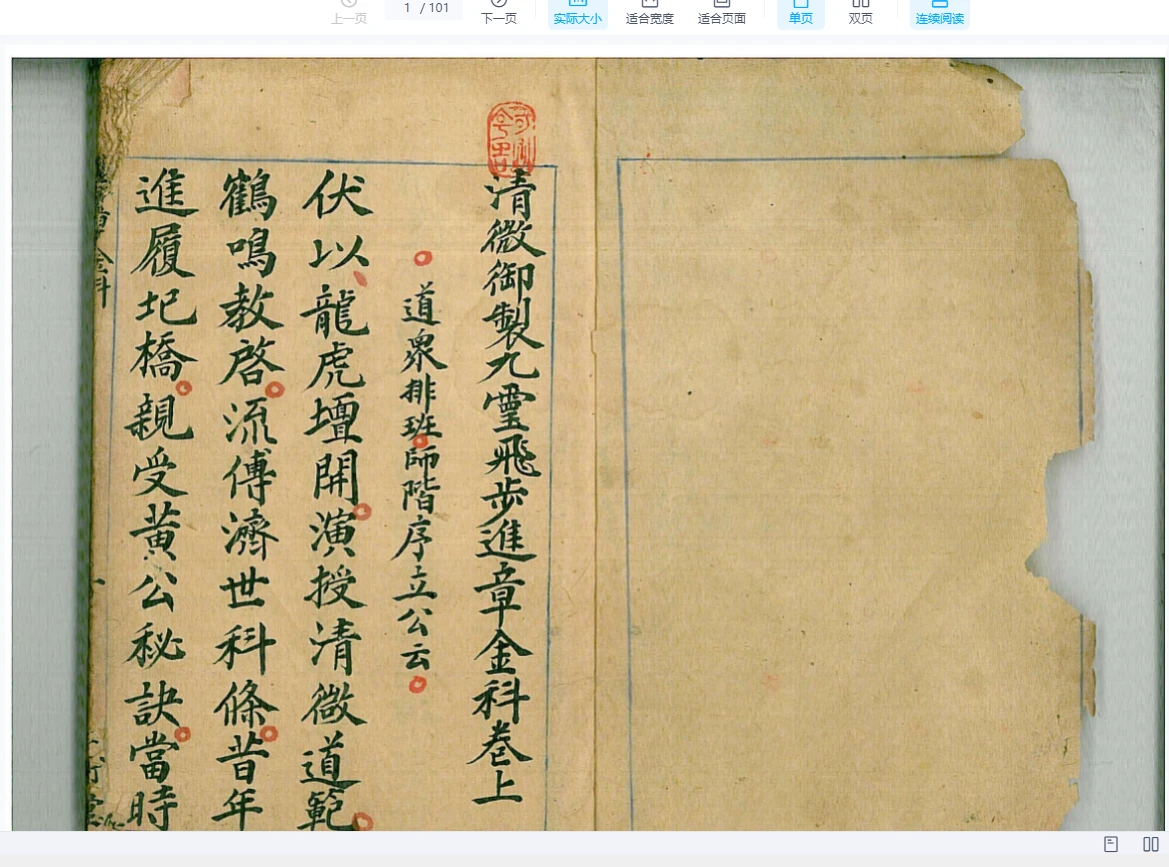 上一页
1 / 101
下一页
实际大小
适合宽度
适合页面
单页
双页
连续阅读
清微御製九霊飛步進章金科卷上
道衆排班師階序立公云
伏以龍虎壇開演授清微道範
鶴鳴教啓流傳濟世科條昔年
進履圯橋親受黃公秘訣當時